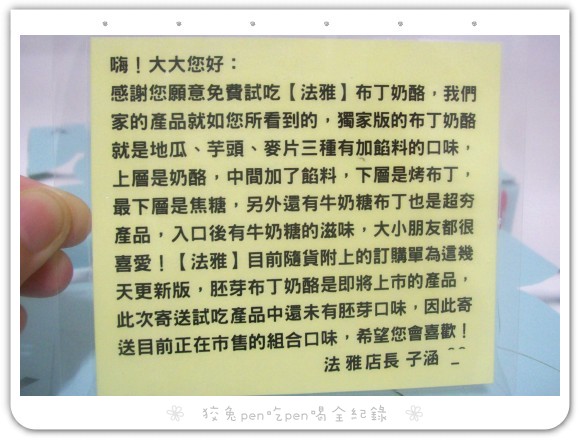 嗨！大大您好：
感謝您願意免費試吃【法雅】布丁奶酪，我們
家的產品就如您所看到的，獨家版的布丁奶酪
就是地瓜、芋頭、麥片三種有加餡料的口味，
上層是奶酪，中間加了餡料，下層是烤布丁，
最下層是焦糖，另外還有牛奶糖布丁也是超夯
產品，入口後有牛奶糖的滋味，大小朋友都很
喜愛！【法雅】目前隨貨附上的訂購單為這幾
天更新版，胚芽布丁奶酪是即將上市的產品，
此次寄送試吃產品中還未有胚芽口味，因此寄
送目前正在市售的組合口味，希望您會喜歡！
法雅店長 子涵
狡兔pen吃pen喝全紀錄